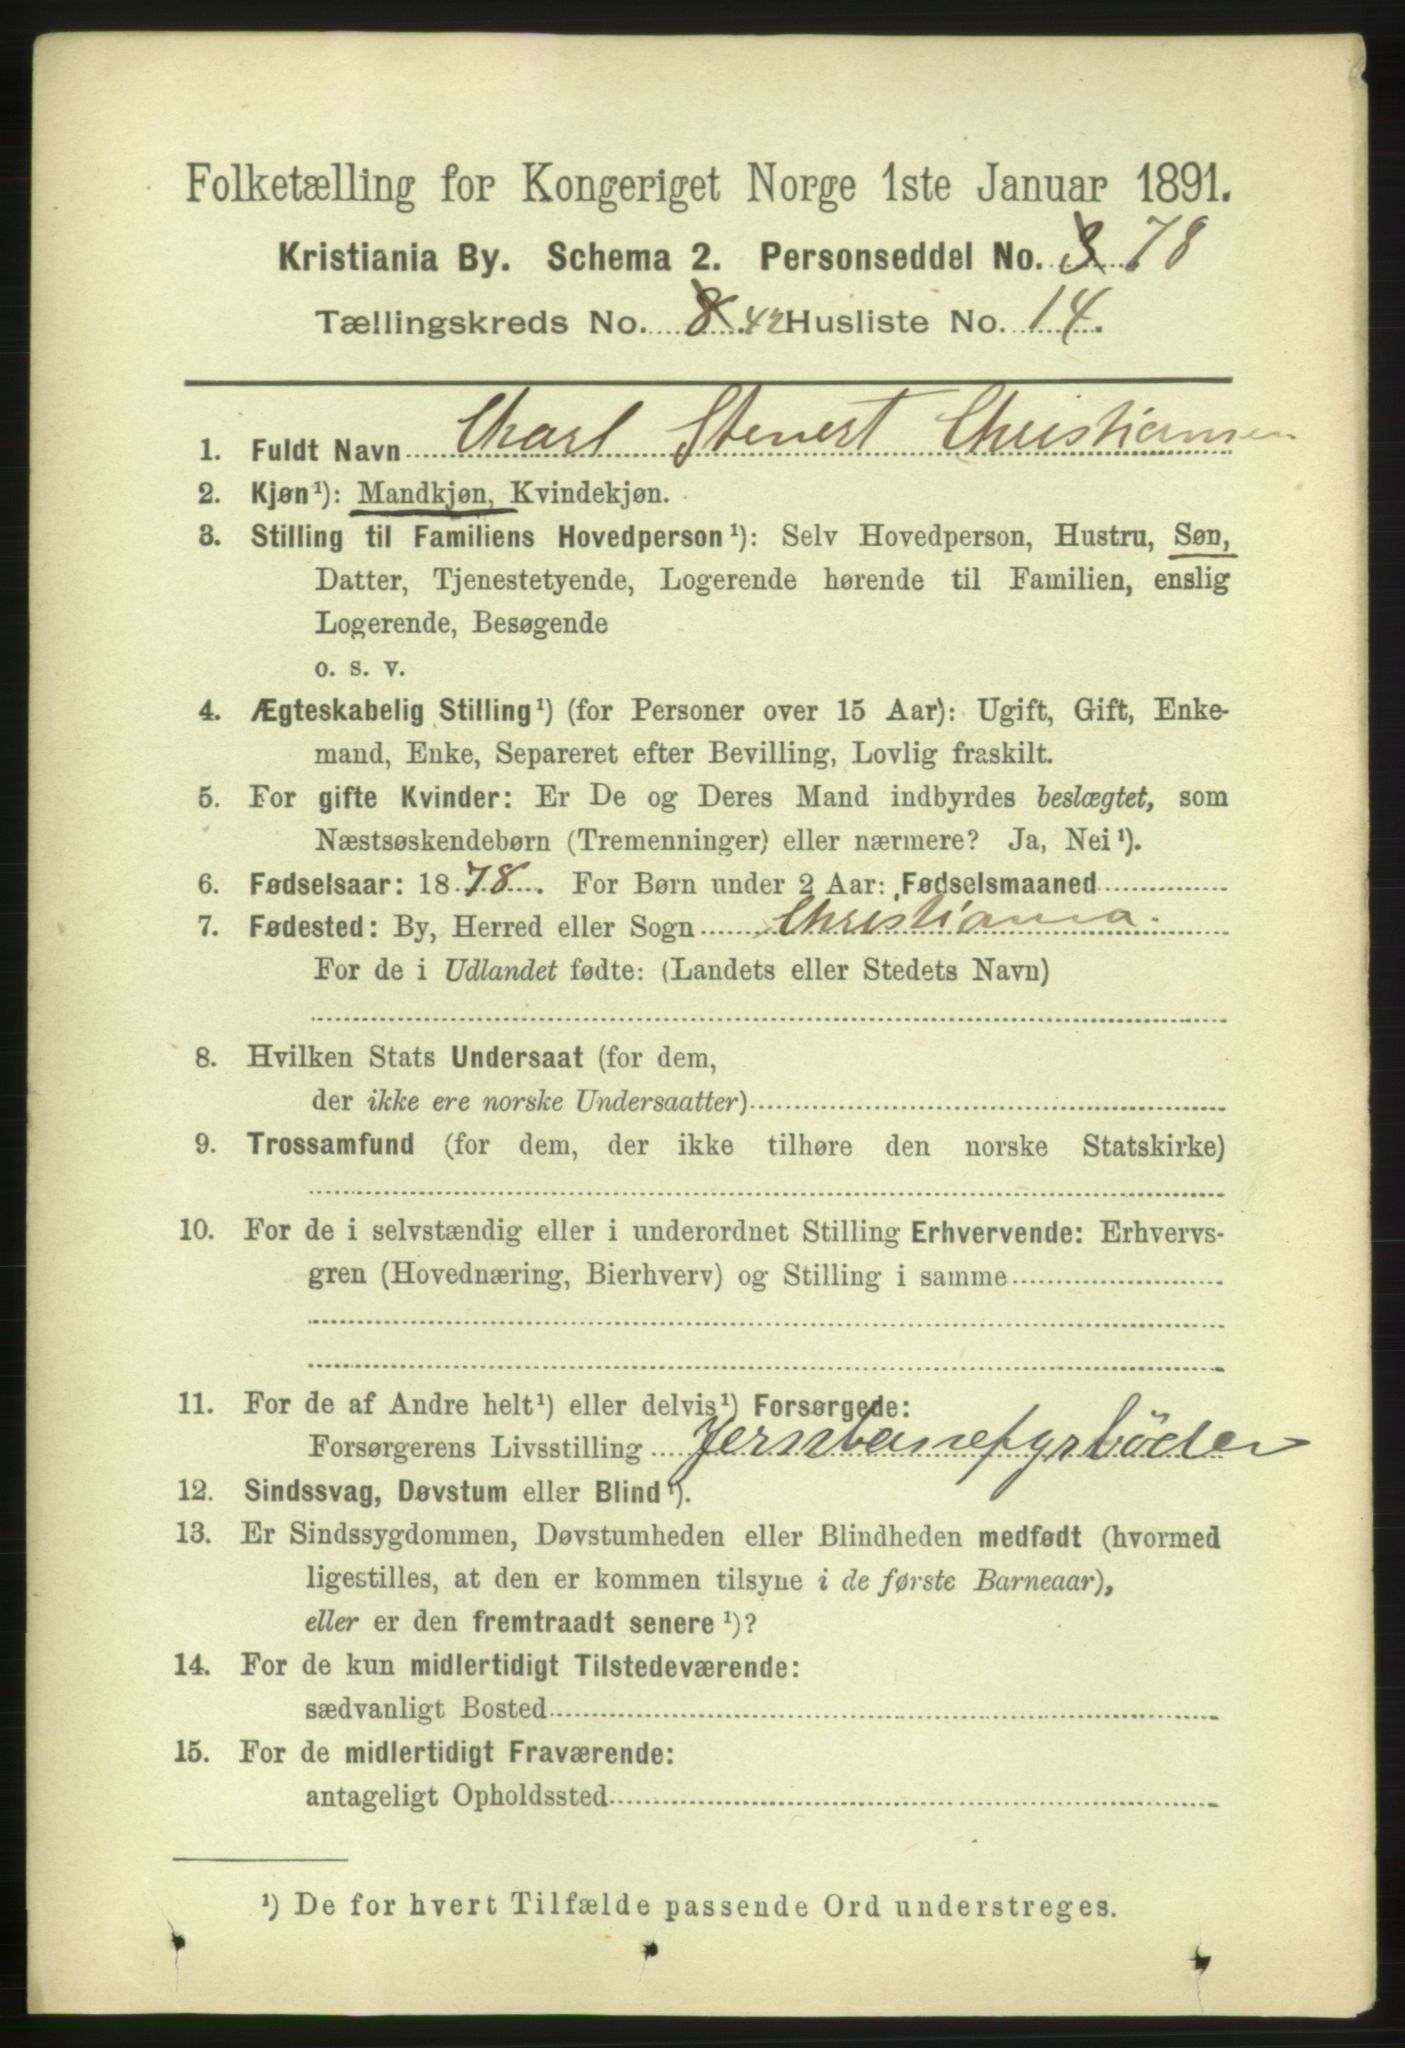 Folketælling for Kongeriget Norge 1ste Januar 1891.
Kristiania By. Schema 2. Personseddel No. 3 78
Tællingskreds No. 8 42 Husliste No. 14.
1. Fuldt Navn Charl Stenert Christiansen
2. Kjøn¹): Mandkjøn, Kvindekjøn.
3. Stilling til Familiens Hovedperson¹): Selv Hovedperson, Hustru, Søn,
Datter, Tjenestetyende, Logerende hørende til Familien, enslig
Logerende, Besøgende
o. s. v.
4. Ægteskabelig Stilling¹) (for Personer over 15 Aar): Ugift, Gift, Enke-
mand, Enke, Separeret efter Bevilling, Lovlig fraskilt.
5. For gifte Kvinder: Er De og Deres Mand indbyrdes beslægtet, som
Næstsøskendebørn (Tremenninger) eller nærmere? Ja, Nei¹).
6. Fødselsaar: 1878. For Børn under 2 Aar: Fødselsmaaned
7. Fødested: By, Herred eller Sogn Christiania.
For de i Udlandet fødte: (Landets eller Stedets Navn)
8. Hvilken Stats Undersaat (for dem,
der ikke ere norske Undersaatter)
9. Trossamfund (for dem, der ikke tilhøre den norske Statskirke)
10. For de i selvstændig eller i underordnet Stilling Erhvervende: Erhvervs-
gren (Hovednæring, Bierhverv) og Stilling i samme
11. For de af Andre helt¹) eller delvis¹) Forsørgede:
Forsørgerens Livsstilling Jernbanefyrböder
12. Sindssvag, Døvstum eller Blind¹).
13. Er Sindssygdommen, Døvstumheden eller Blindheden medfødt (hvormed
ligestilles, at den er kommen tilsyne i de første Barneaar),
eller er den fremtraadt senere¹)?
14. For de kun midlertidigt Tilstedeværende:
sædvanligt Bosted
15. For de midlertidigt Fraværende:
antageligt Opholdssted
¹) De for hvert Tilfælde passende Ord understreges.